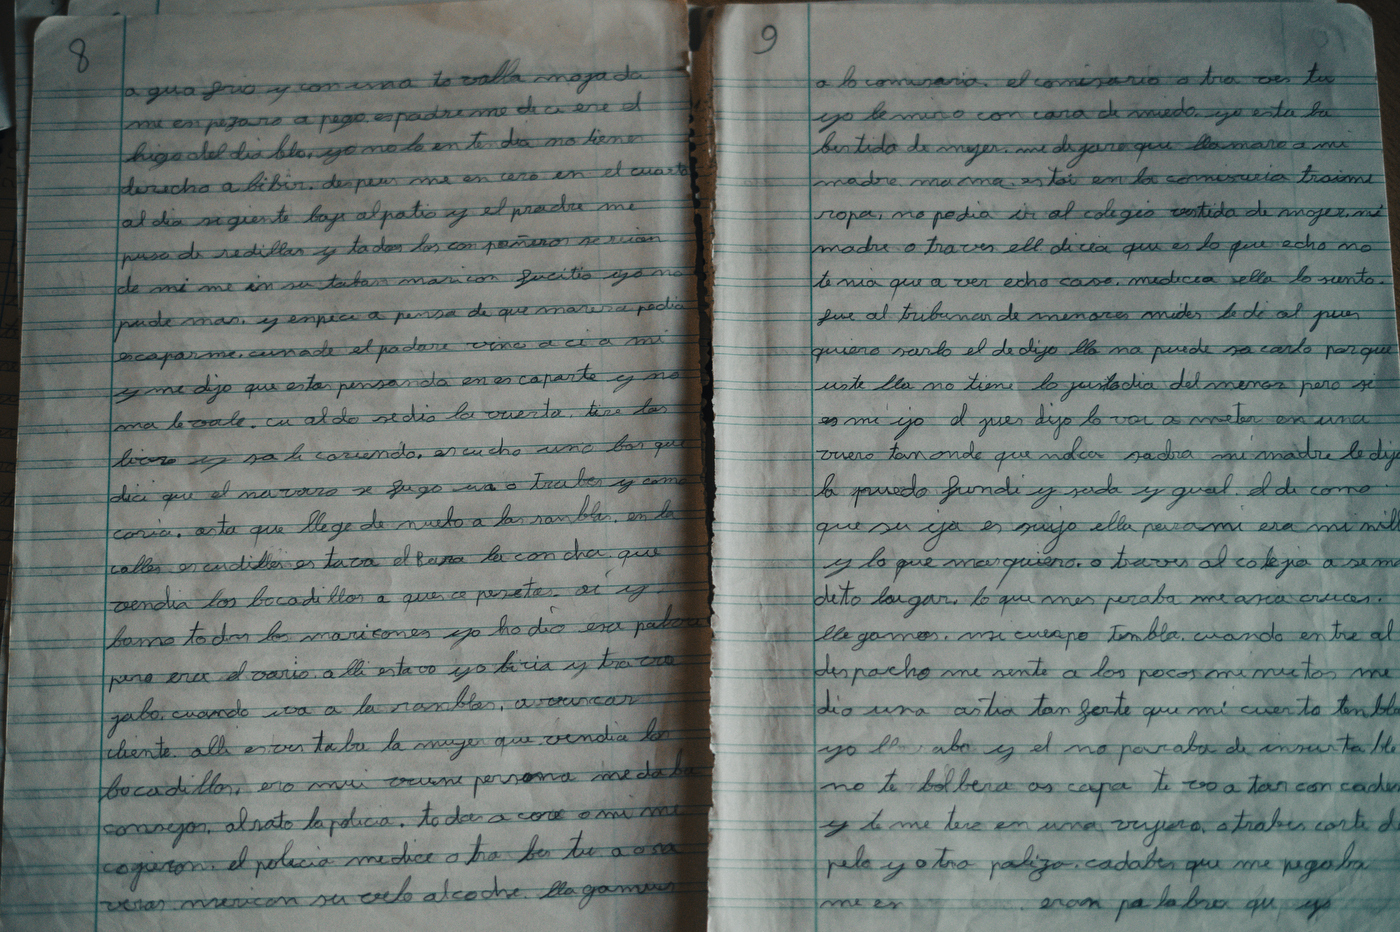 8
agua frio y con una to valla mogada
me enpezaro a pega. espadre me deci ere el
higo del diablo, yo no lo en ten dia no tiener
derecho a bibir. despues me en cero en el cuarto
al dia segiente baje al patio y el pradre me
puso de redillas y todos los conpañeros se reian
de mi me in su taban maricon sucitio yo no
pude mas. y enpece a pensa de que manera podia
escaparme. cunade el padare vino a ci a mi
y me dijo que estas pensando en escaparte y no
ma le vale. cu aldo se dio la vuerta. tire los
libros y sa li coriendo. escucho uno los que
dici que el navarro se fugo va o trabes y como
coria. asta que llege de nuebo a las ramblas. en la
calles escudilles estava el Bara la concha que
vendia los bocadillos a quince pesetas. ai y
bamo todos los maricones yo hodio esa palabra
pero era el vario. alli estavo yo bicia y trava
gabo. cuando iva a la ramblas, a vuscar
cliente. alli es ves taba la mujer que vendia los
bocadillos, era mui buene persona me daba
consejos. al rato la policia. todos a core o mi me
cogieron. el policia me dice otra bes tu a ora
veras maricon su velo al coche. lla gamus
9
a la comisaria. el comisario o tra ves tu
yo le miro con cara de miedo. yo esta ba
bestido de mujer. me dejaro que llamara a mi
madre. mama estoi en la comiseria traime
ropa, no podia ir al colegio vestida de mojer. mi
madre o traves ell dicia que es lo que echo no
tenia que a ver echo caso. me decia ella lo siento.
fue al tribunar de menores mi der le di al jues
quiero sarlo el de dijo lla no puede sacarlo porque
uste lla no tiene la justodia del menor pero si
es mi ijo el jues dijo lo voi a meter en una
vuero tan onde que nolca sadra mi madre le dijo
la puedo funde y suda y gual. el de como
que su ija es suijo ella para mi era mi
y lo que mas quiero. o traves al colejio a se ma
dito lugar. lo que mes peraba me asia cruces.
lle gamos. mi cuerpo tenbla. cuando entre al
despacho me sente a los pocos menuetos me
dio una ostia tan ferte que mi cuerto tenbla
yo llorabo y el no paraba de insurta lle
no te bolbera as capa te vo a tar con caden
y te me tere en una vujero. otrabes corte de
pelo y otra paliza. cadabes que me pegaba
me es eran palabra que yo